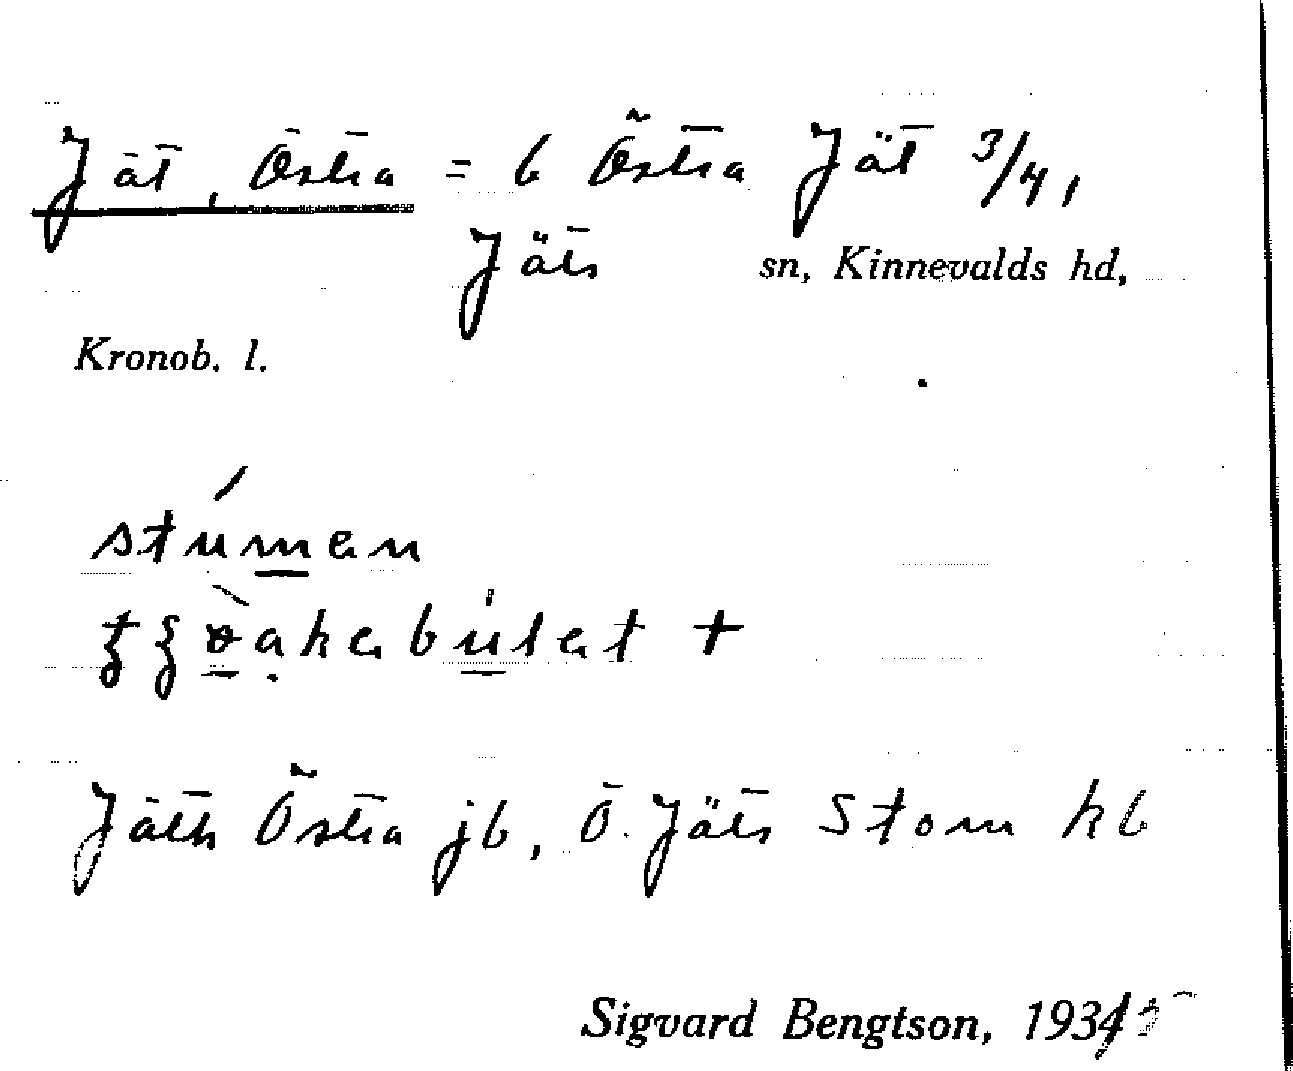 Jät, Östra = b Östra Jät 3/4,
Jäts sn, Kinnevalds hd,
Kronob. l.
stúmen
Jäth Östra jb, Ö. Jäts Stom kb
Sigvard Bengtson, 1935